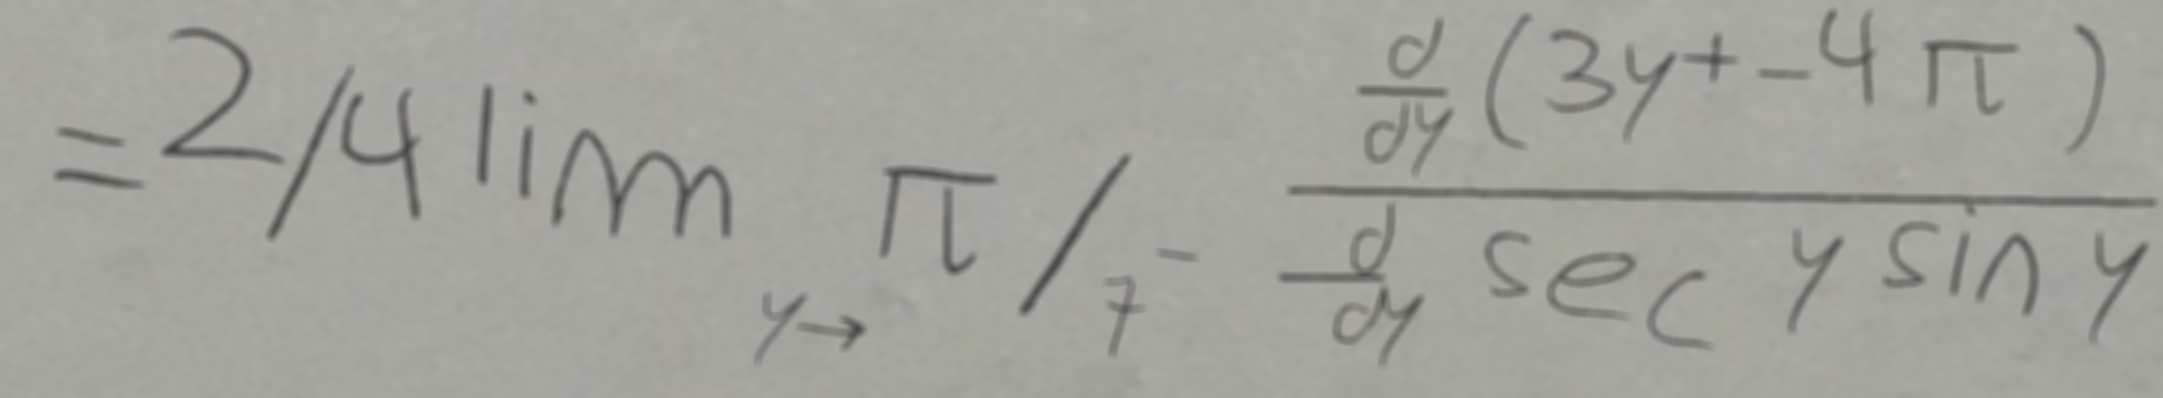 = 2/4 \lim_{y \to \pi/7^-} \frac{\frac{d}{dy}(3y + -4\pi)}{\frac{d}{dy} \sec y \sin y}